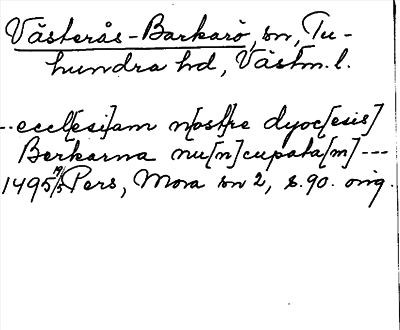 Västerås-Barkarö, sn, Tu-
hundra hd, Västm. l.
--eccl[esi]am n[ost]re dyoc[esis]
Berkarna nu[n]cupata[m]---
1495 19/5 Pers, Mora sn 2, s. 90. orig.